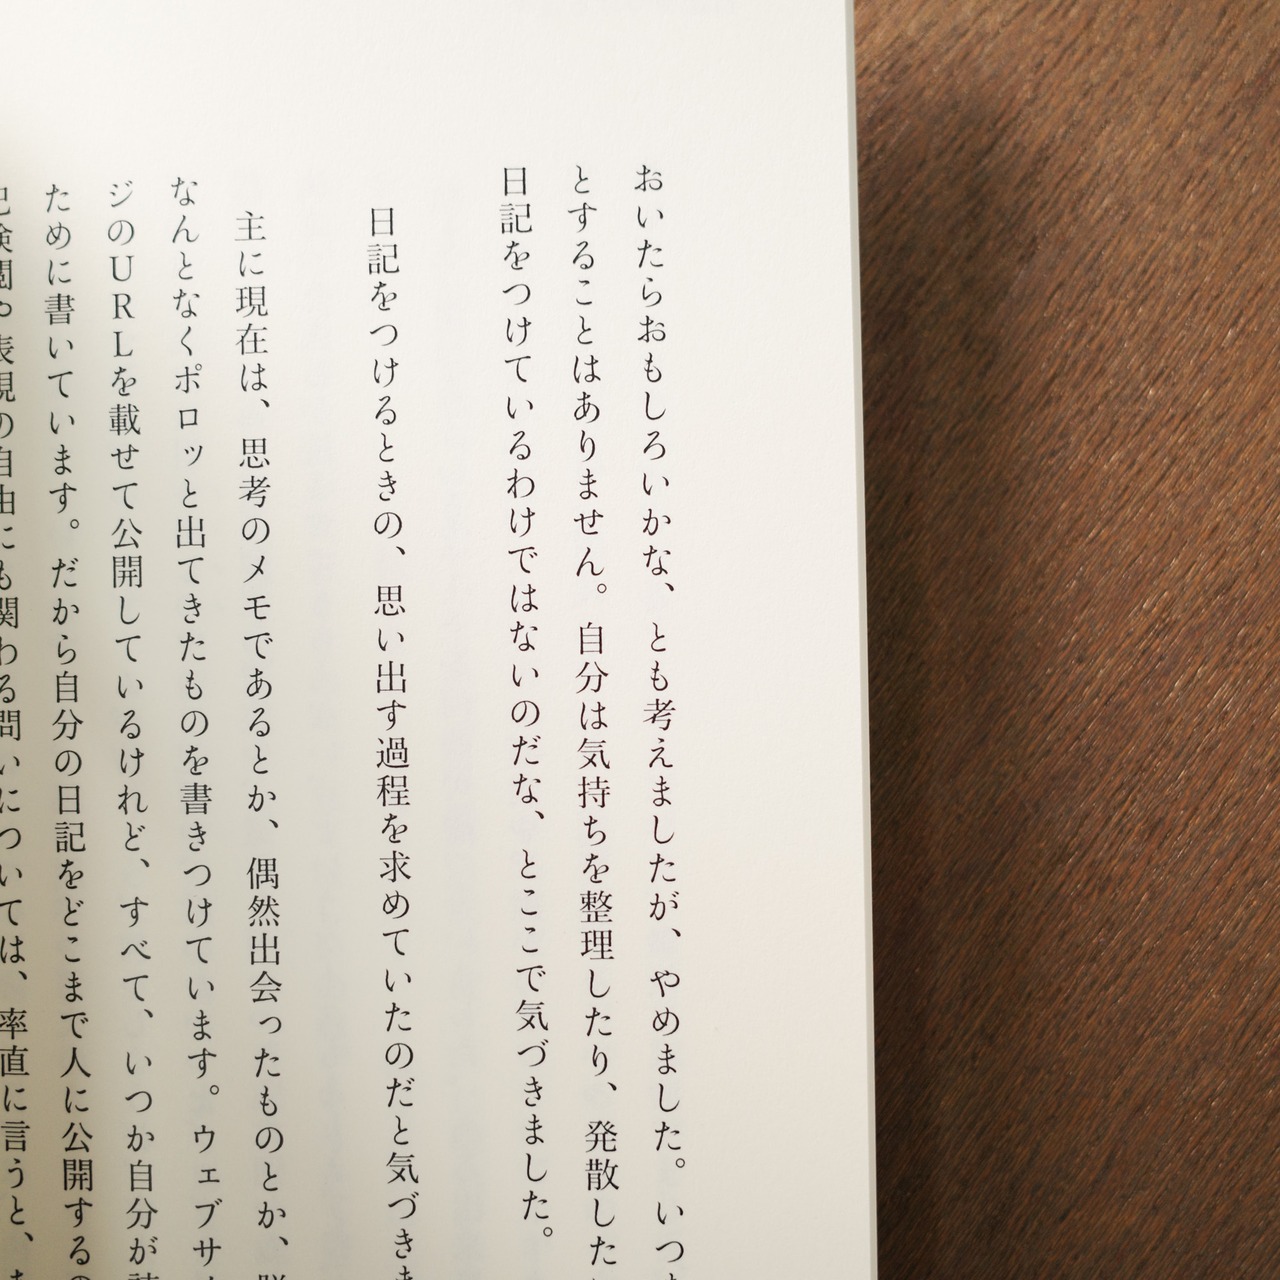 おいたらおもしろいかな、とも考えましたが、やめました。いつ
とすることはありません。自分は気持ちを整理したり、発散した
日記をつけているわけではないのだな、とここで気づきました。
日記をつけるときの、思い出す過程を求めていたのだと気づき
主に現在は、思考のメモであるとか、偶然出会ったものとか、
なんとなくポロッと出てきたものを書きつけています。ウェブサ
ジのURLを載せて公開しているけれど、すべて、いつか自分が
ために書いています。だから自分の日記をどこまで人に公開する
己検閲や表現の自由にも関わる問いについては、率直に言うと、